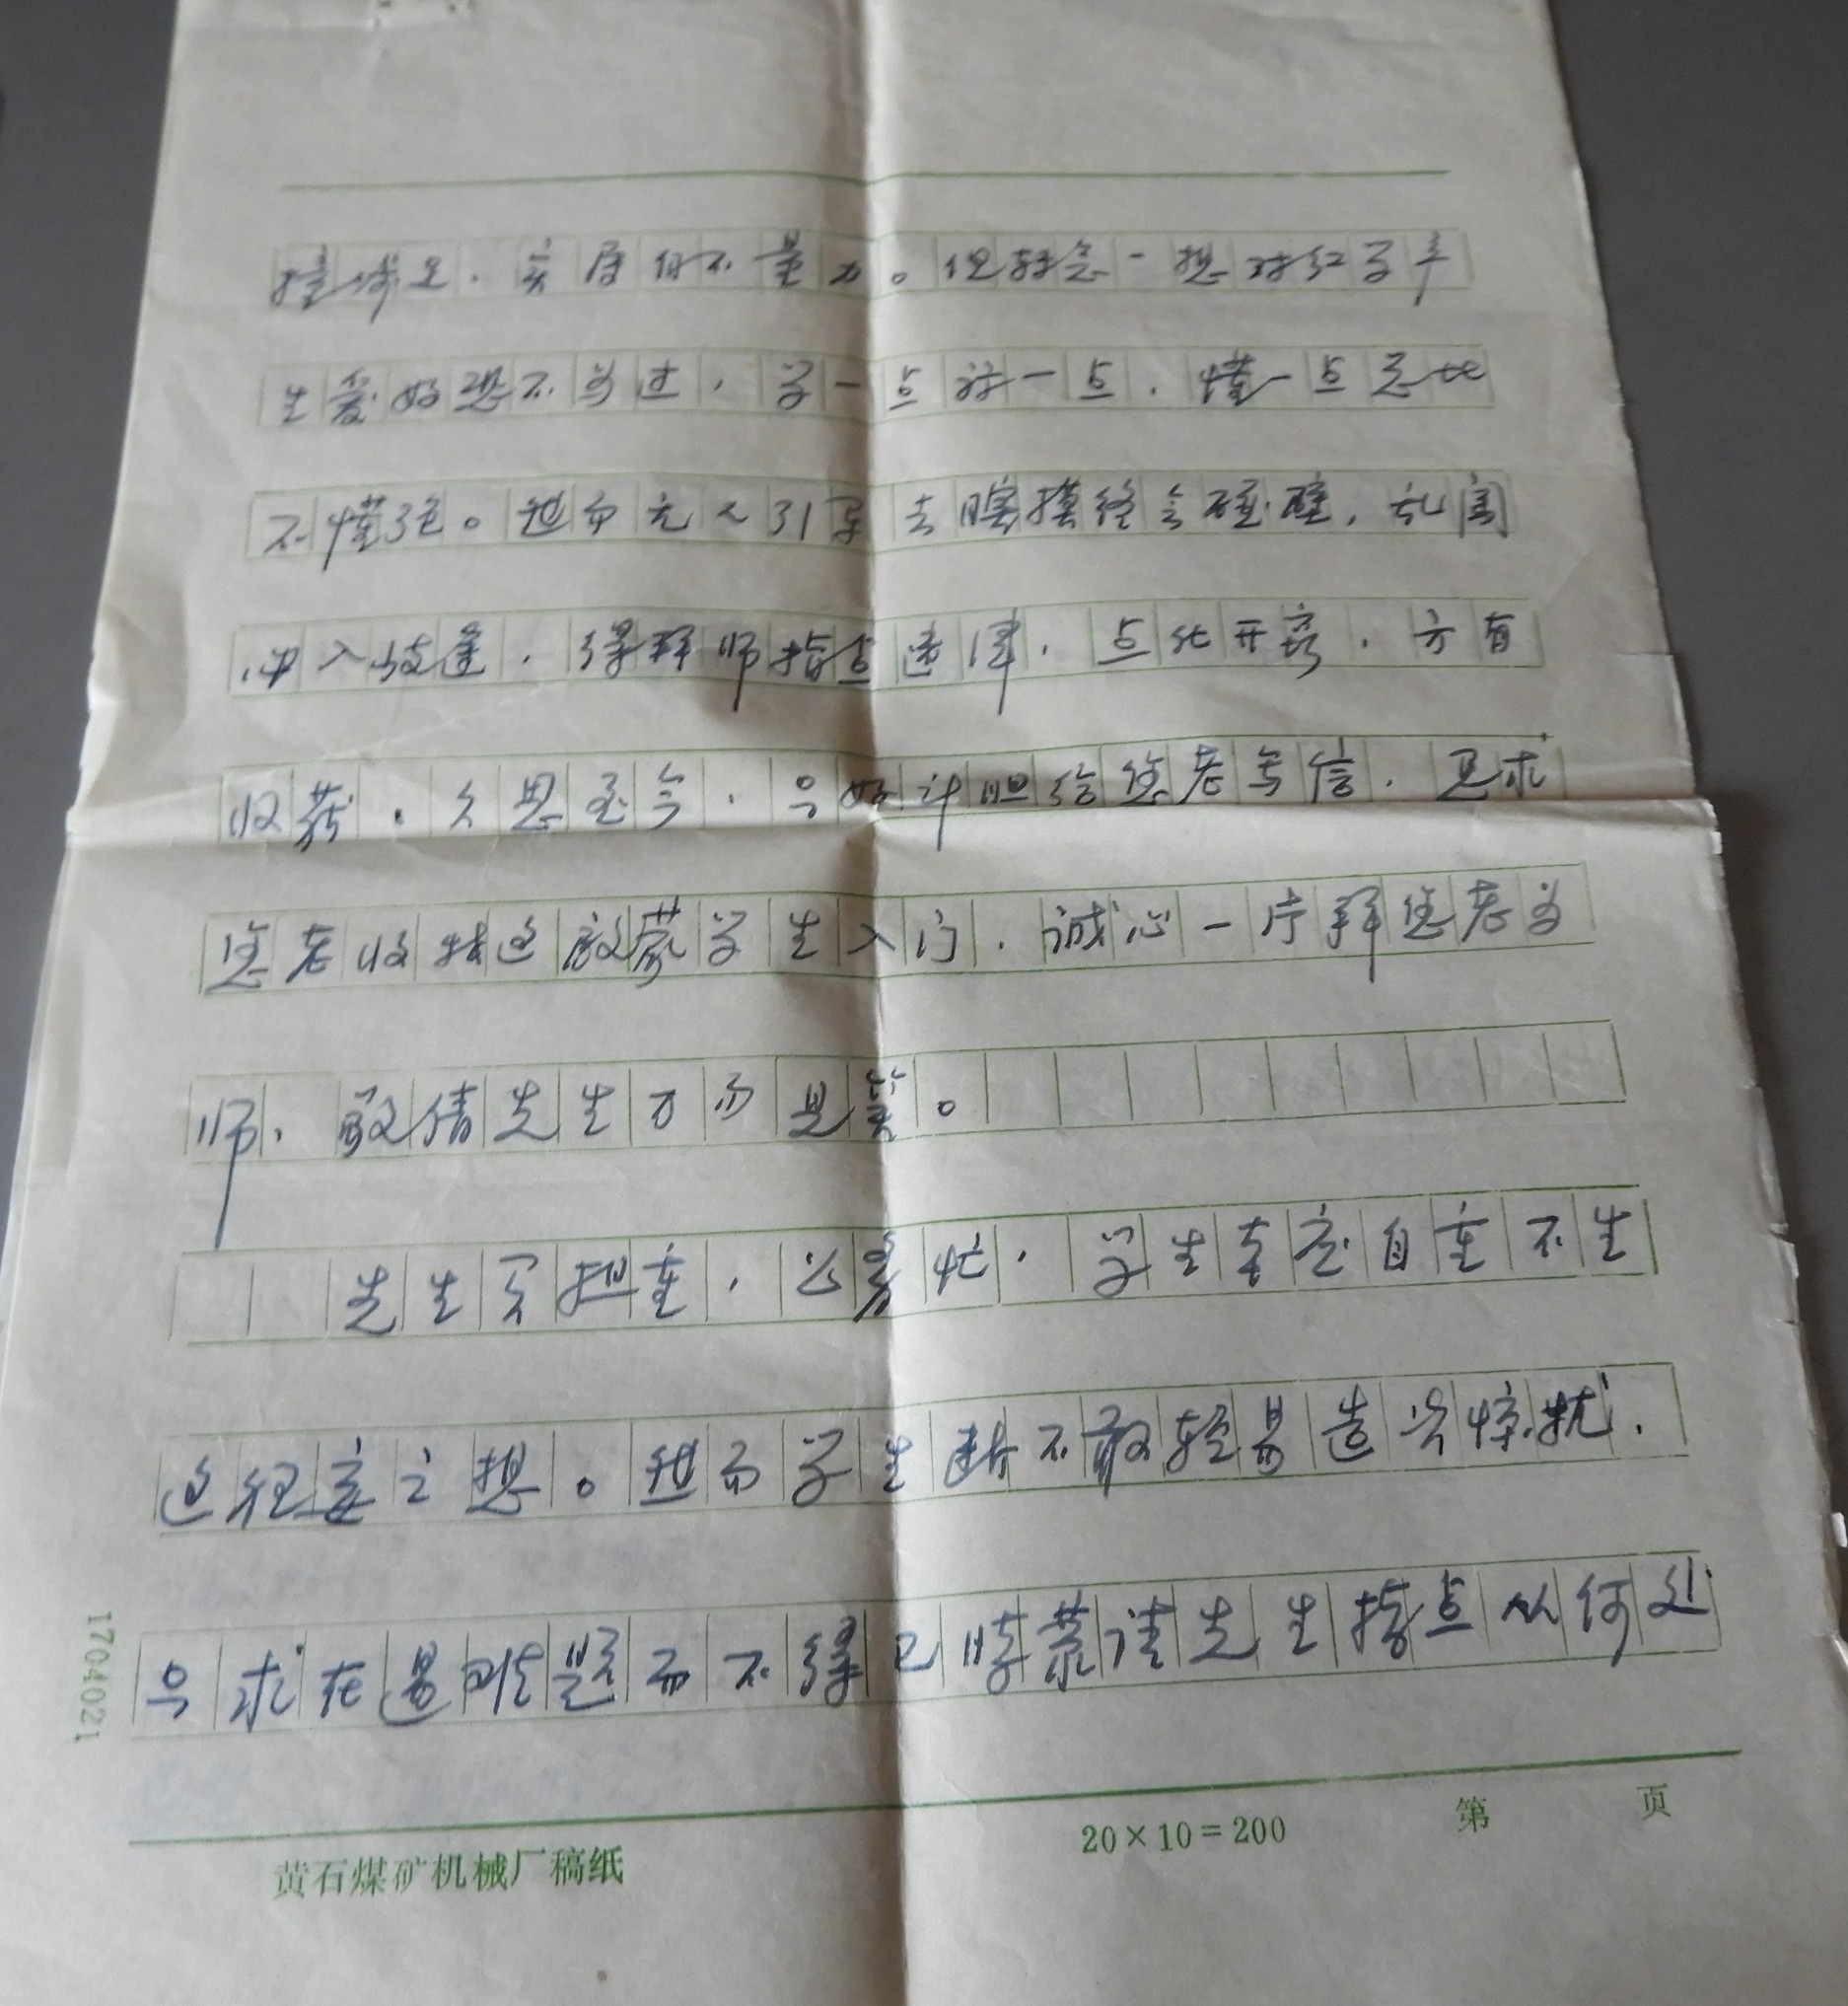 撞城足，实属自不量力。但转念一想对红学平
生爱好想不为过，学一点讨一点，懂一点总比
不懂强。但如无人引导去瞎摸终会碰壁，乱闯
冲入歧途，得拜师指点迷津，点化开窍，方有
收获，久思至今，只好斗胆给您老写信，恳求
您老收持这启蒙学生入门，诚心一片拜您老为
师，敬请先生万勿见笑。
先生学担重，公务忙，学生幸应自重不生
这程度之想。但而学生断不敢轻易造次惊扰，
只求在遇难题而不得已时恭请先生指点从何处
1704021
黄石煤矿机械厂稿纸
20×10=200
第 页